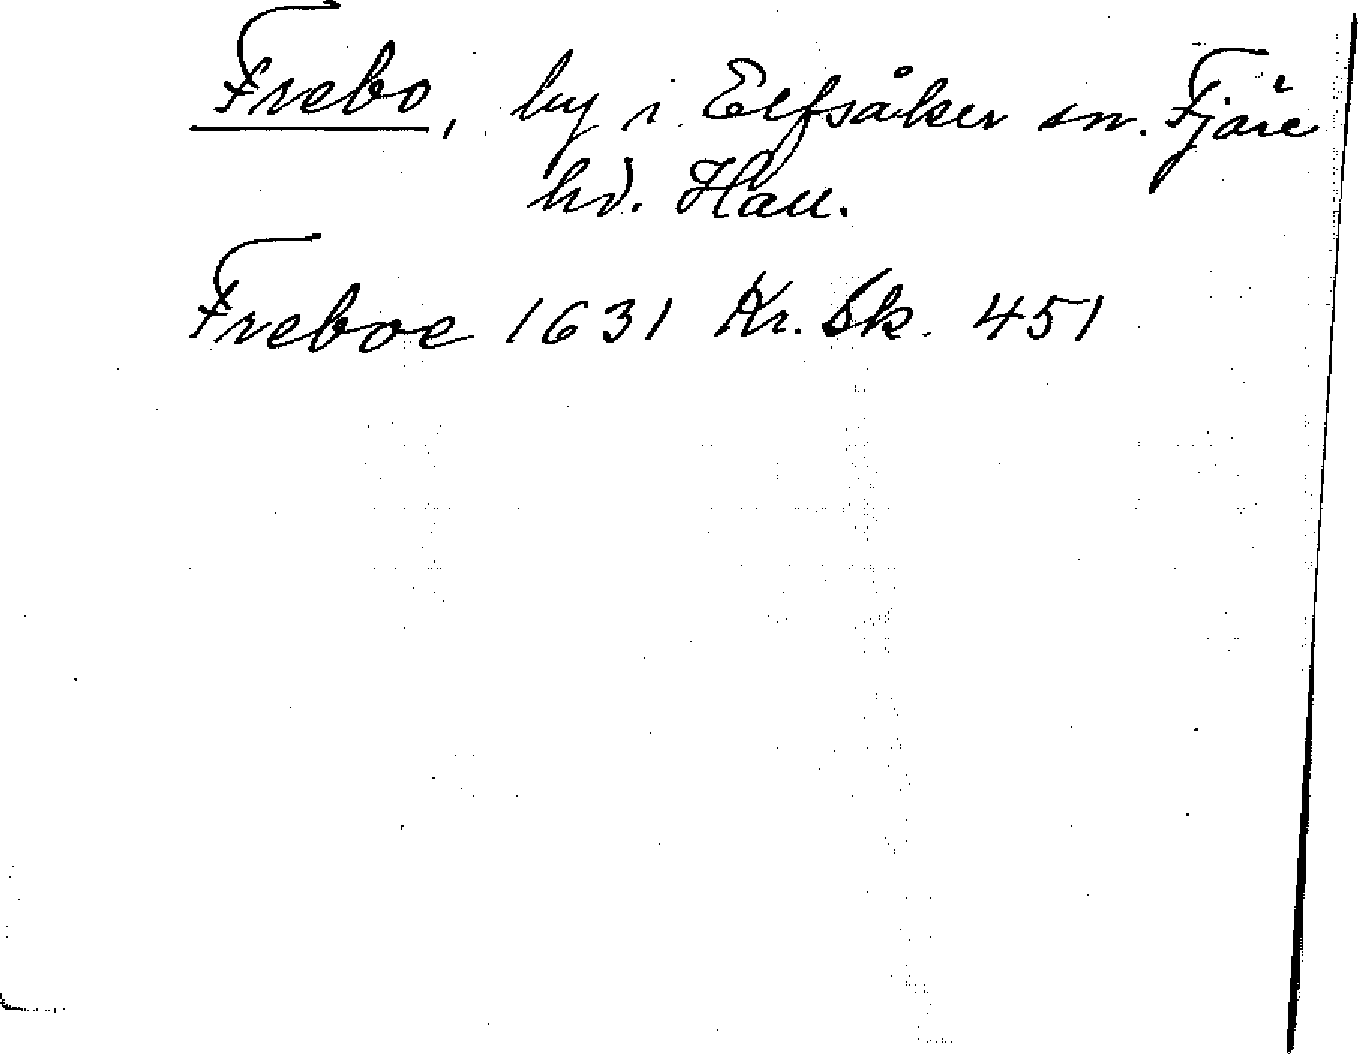 Frebo, by i Elfsåker sn. Fjäre
hd. Hall.
Freboe 1631 Kr. Sk. 451